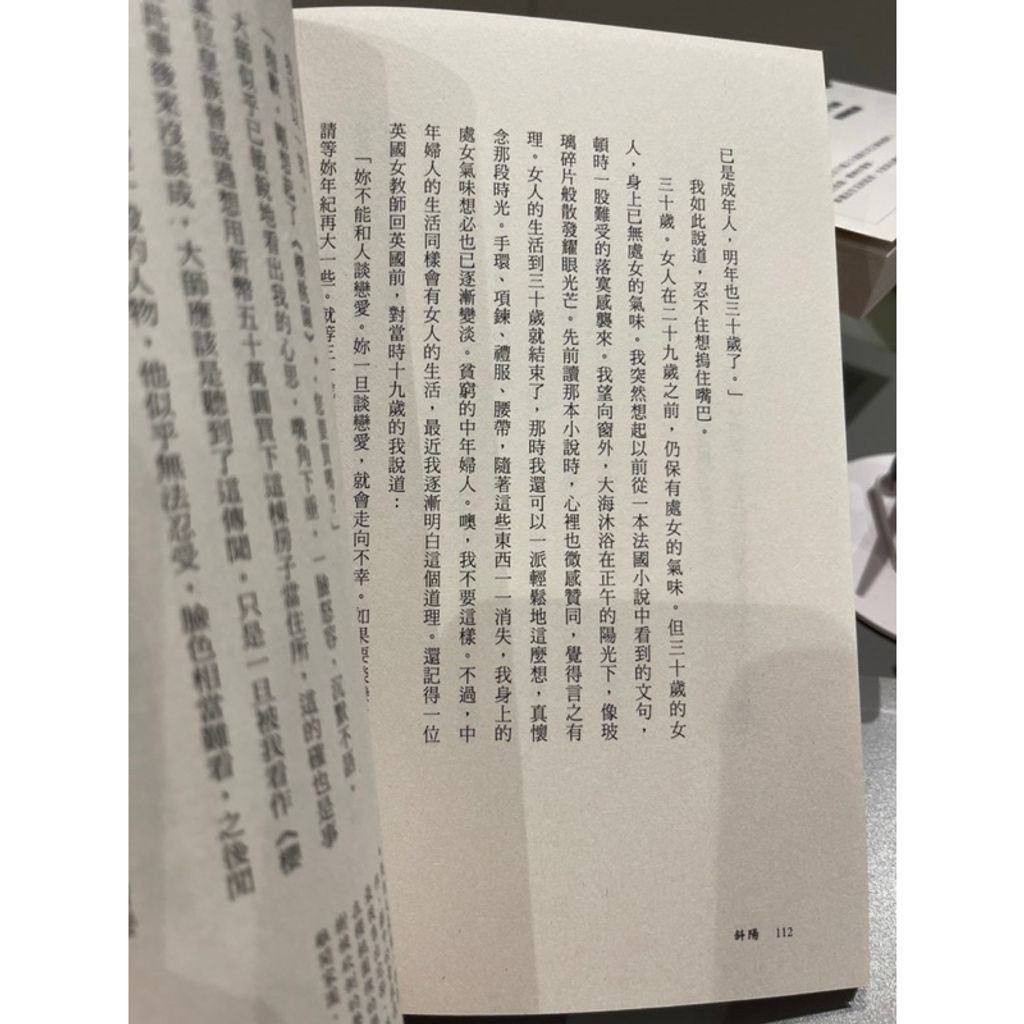 已是成年人，明年也三十歲了。」
我如此說道，忍不住想摀住嘴巴。
三十歲。女人在二十九歲之前，仍保有處女的氣味。但三十歲的女
人，身上已無處女的氣味。我突然想起以前從一本法國小說中看到的文句，
頓時一股難受的落寞感襲來。我望向窗外，大海沐浴在正午的陽光下，像玻
璃碎片般散發耀眼光芒。先前讀那本小說時，心裡也微感贊同，覺得言之有
理。女人的生活到三十歲就結束了，那時我還可以一派輕鬆地這麼想，真懷
念那段時光。手環、項鍊、禮服、腰帶，隨著這些東西一一消失，我身上的
處女氣味想必也已逐漸變淡。貧窮的中年婦人。噢，我不要這樣。不過，中
年婦人的生活同樣會有女人的生活，最近我逐漸明白這個道理。還記得一位
英國女教師回英國前，對當時十九歲的我說道：
「妳不能和人談戀愛。妳一旦談戀愛，就會走向不幸。如果要
請等妳年紀再大一些。就等三十
斜陽 112
，您要買嗎？」
大師似乎已敏銳地看出我的心思，嘴角下垂，一臉怒容，沉默不語。
某位皇族曾說過想用新幣五十萬圓買下這棟房子當住所，這的確也是事
此事後來沒談成，大師應該是聽到了這傳聞。只是一旦被我看作《櫻
的人物，他似乎無法忍受，臉色相當難看，之後閒